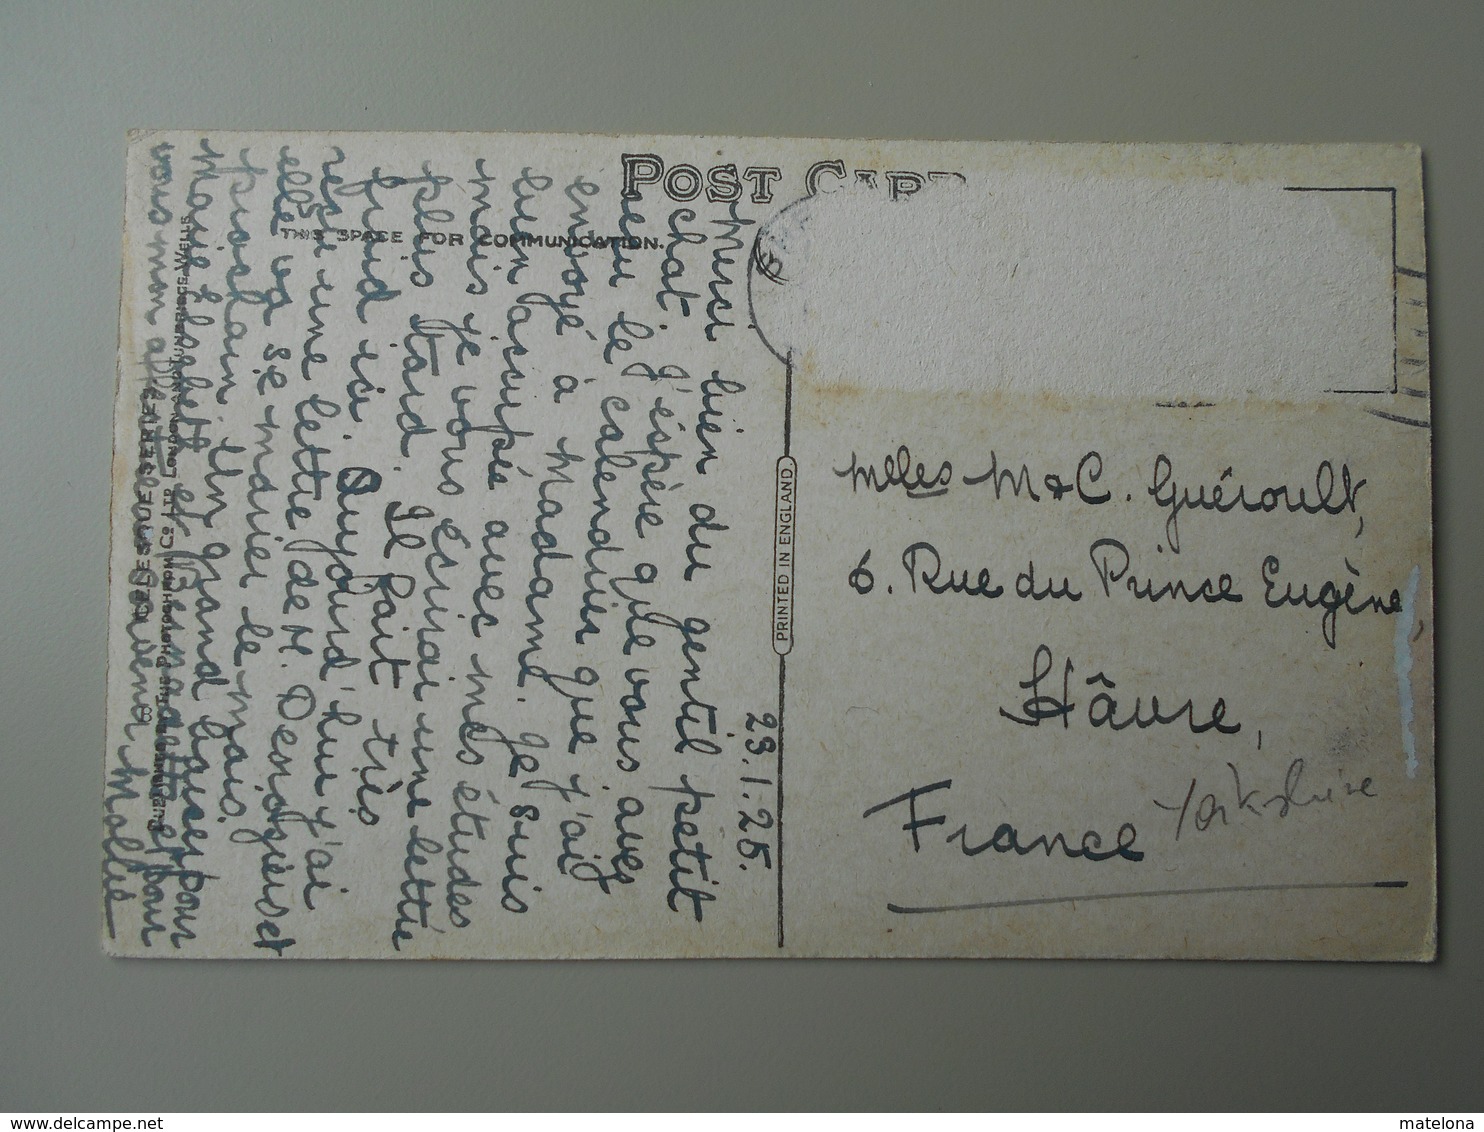 POST CARD
THIS SPACE FOR COMMUNICATION.
23.1.25.
Merci bien du gentil petit
chat. J'espère que vous avez
reçu le calendrier que j'ai
envoyé à Madame. Je suis
bien occupée avec mes études
mais je vous écrirai une lettre
plus tard. Il fait très
froid ici. Aujourd'hui j'ai
reçu une lettre de M. Denoziers et
elle va se marier le mois
prochain. Un grand baiser pour
Marie Elisabeth et et pour
vous mon
Mollie
PRINTED IN ENGLAND
Melles M & C. Guéroult,
6. Rue du Prince Eugène,
Hâvre,
France
Yorkshire
"CELESQUE SERIES"
PUBLISHED BY THE PHOTOCHROM CO. LTD. LONDON AND TUNBRIDGE WELLS
matelona